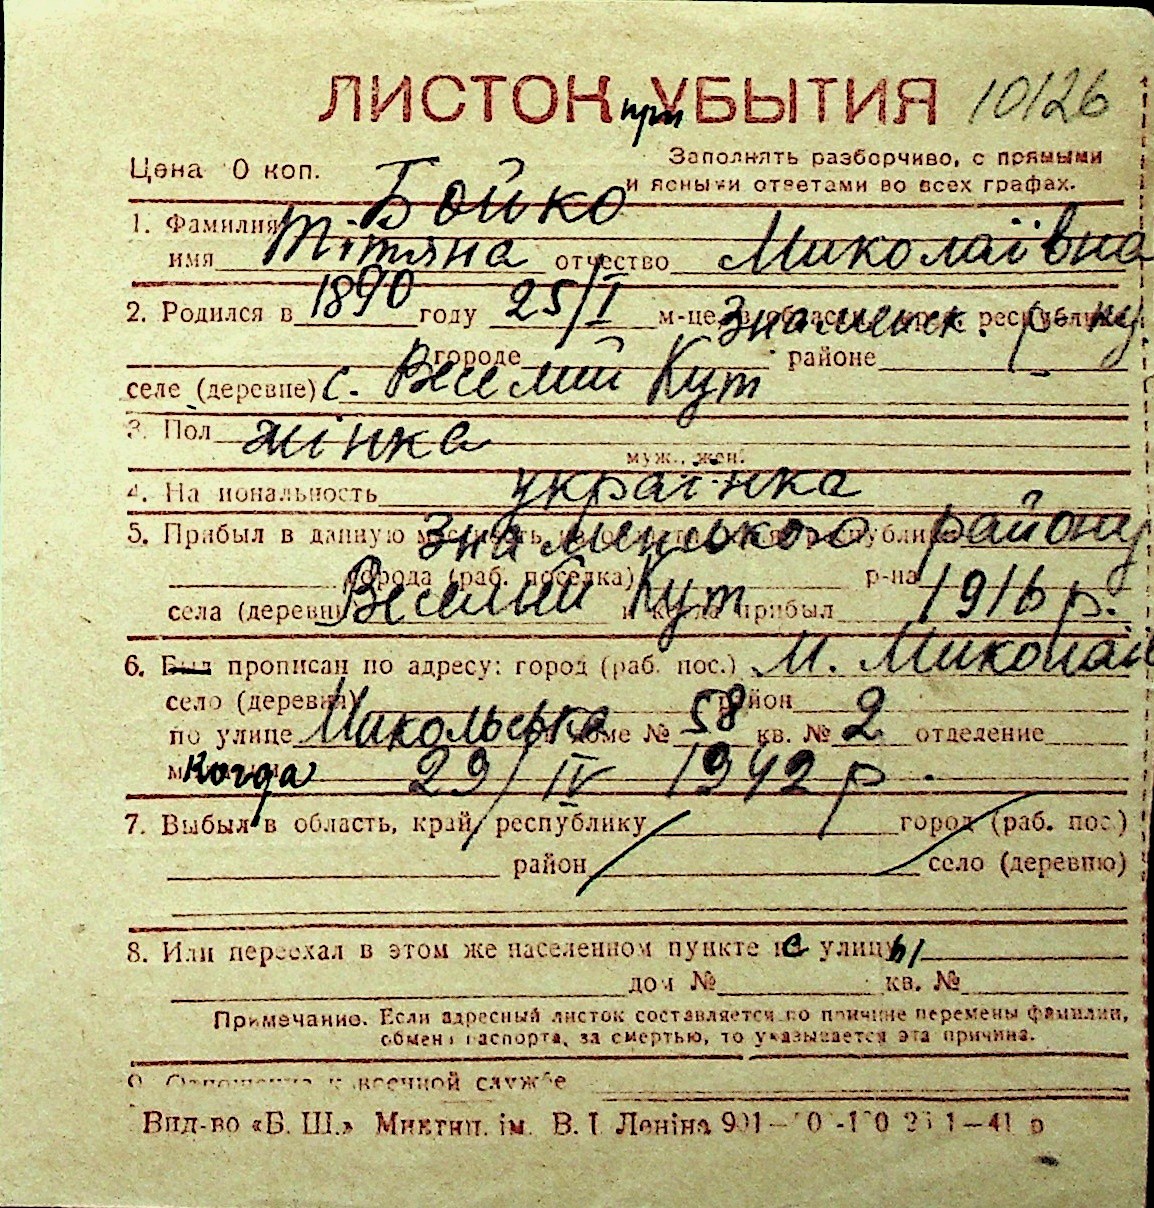 ЛИСТОК при УБЫТИЯ 10126
Цена 0 коп.
Заполнять разборчиво, с прямыми
и ясными ответами во всех графах.
1. Фамилия Бойко
имя Тітяна отчество Миколаївна
2. Родился в 1890 году 25/I м-це, в области, крае, республике Знаменск. р-ну
городе районе
селе (деревне) с. Веселий Кут
3. Пол жінка
муж., жен.
4. На иональность українка
5. Прибыл в данную местность Знаменського району
города (раб. поселка) р-на
села (деревни) Веселий Кут и когда прибыл 1916 р.
6. Был прописан по адресу: город (раб. пос.) М. Миколаїв
село (деревня) район
по улице Микольська доме № 58 кв. № 2 отделение
Когда 29/IV 1942 р.
7. Выбыл в область, край, республику город (раб. пос.)
район село (деревню)
8. Или переехал в этом же населенном пункте с улицы
дом № кв. №
Примечание. Если адресный листок составляется по причине перемены фамилии,
обмена паспорта, за смертью, то указывается эта причина.
9. Отношение к военной службе
Вид-во «Б. Ш.» Миктип. ім. В. І. Леніна